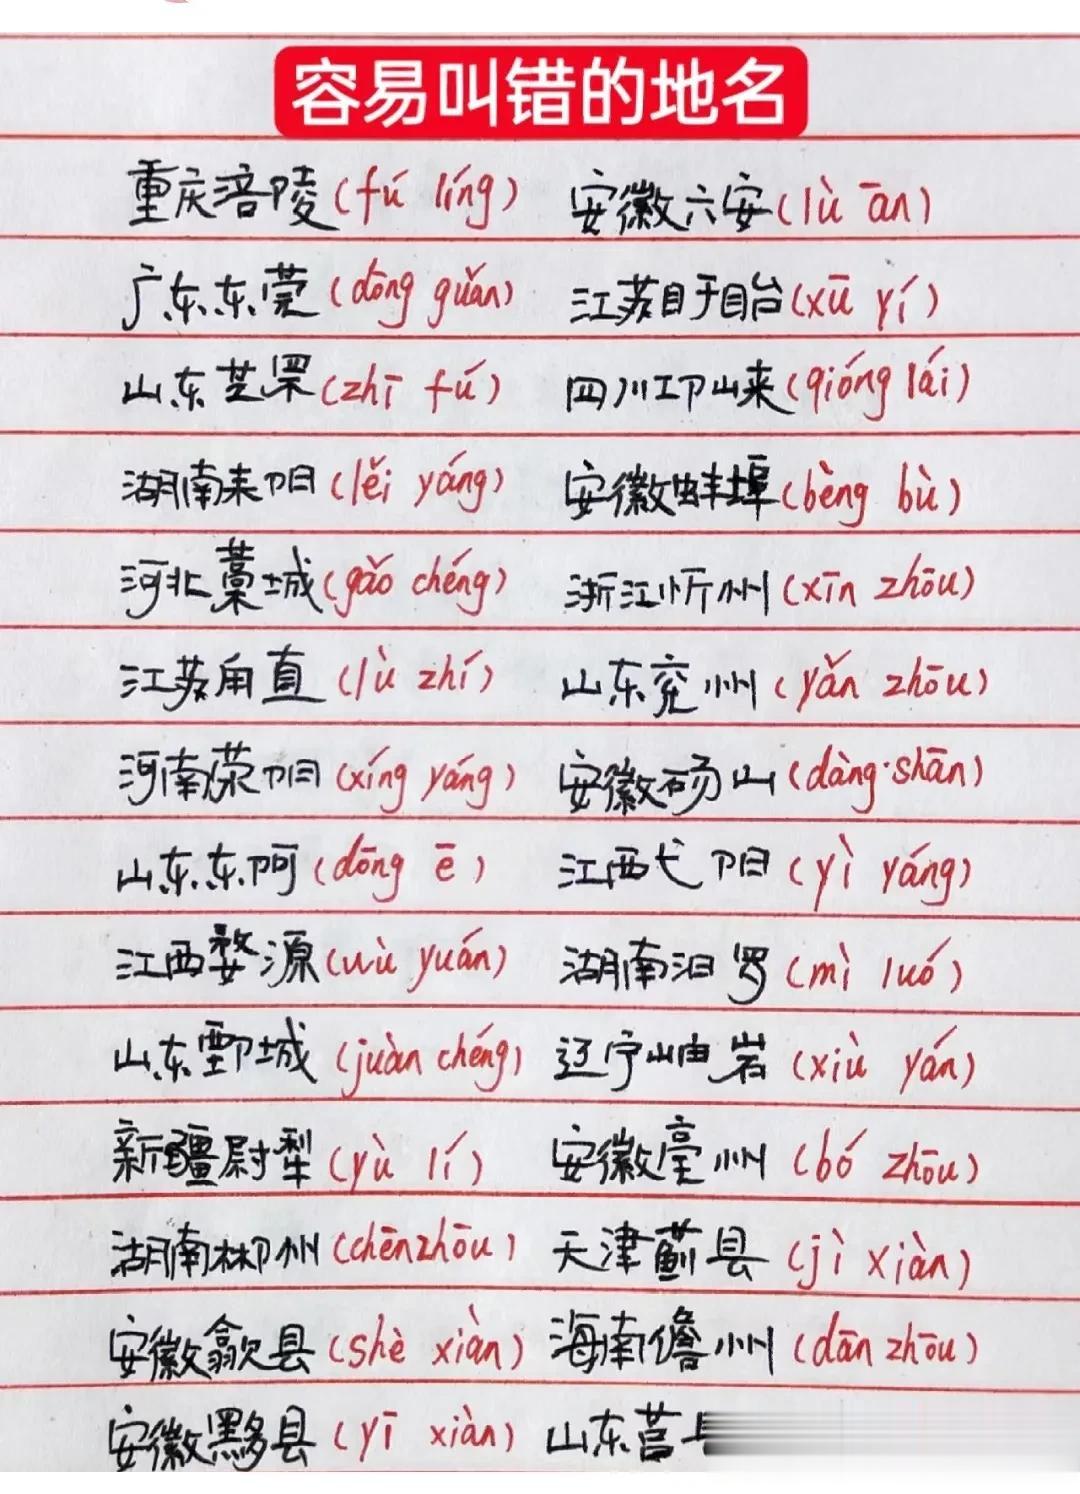 容易叫错的地名
重庆涪陵(fú líng) 安徽六安(lù ān)
广东东莞(dōng guǎn) 江苏盱眙(xū yí)
山东芝罘(zhī fú) 四川邛崃(qióng lái)
湖南耒阳(lěi yáng) 安徽蚌埠(bèng bù)
河北藁城(gǎo chéng) 浙江忻州(xīn zhōu)
江苏甪直(lù zhí) 山东兖州(yǎn zhōu)
河南荥阳(xíng yáng) 安徽砀山(dàng·shān)
山东东阿(dōng ē) 江西弋阳(yì yáng)
江西婺源(wù yuán) 湖南汨罗(mì luó)
山东鄄城(juàn chéng) 辽宁岫岩(xiù yán)
新疆尉犁(yù lí) 安徽亳州(bó zhōu)
湖南郴州(chēnzhōu) 天津蓟县(jì xiàn)
安徽歙县(shè xiàn) 海南儋州(dān zhōu)
安徽黟县(yī xiàn) 山东莒